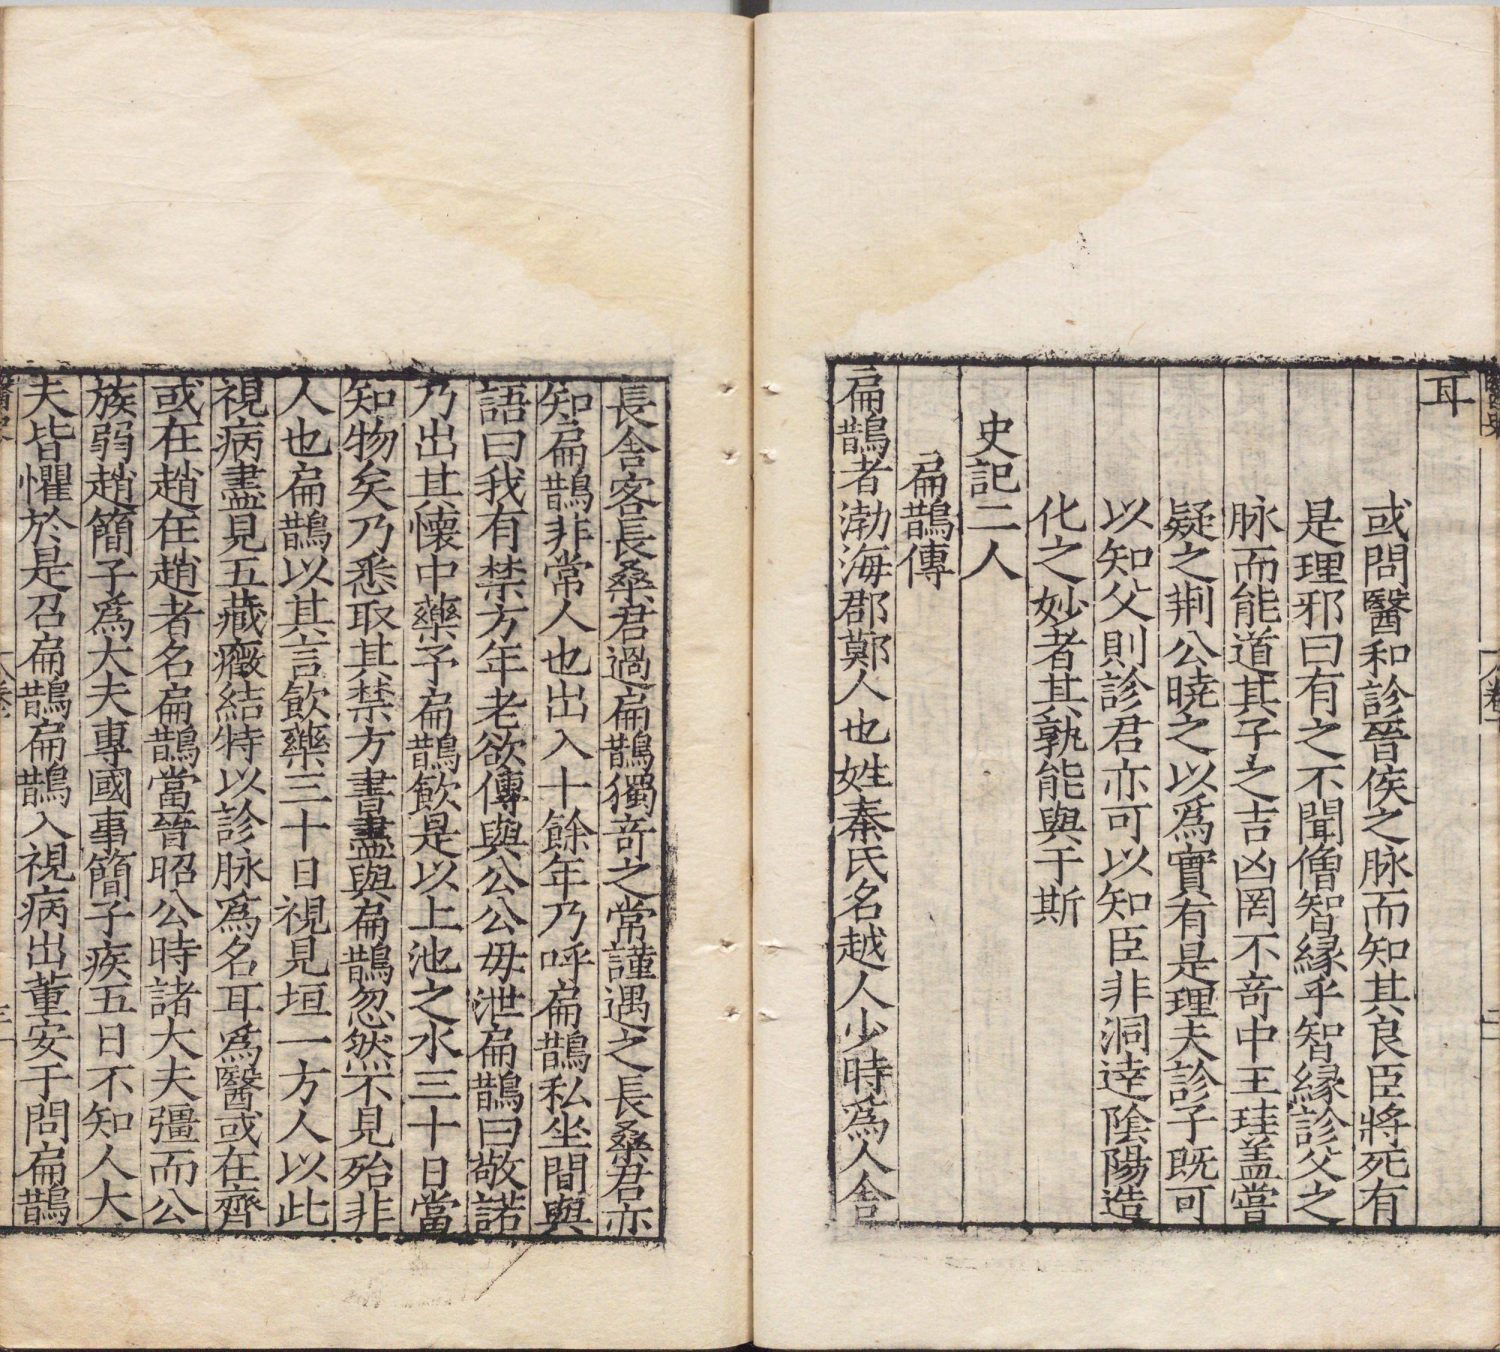 耳
或問醫和診晉侯之脉而知其良臣將死有
是理邪曰有之不聞僧智縁乎智縁診父之
脉而能道其子之吉凶罔不竒中王珪盖嘗
疑之荆公曉之以爲實有是理夫診子既可
以知父則診君亦可以知臣非洞達隂陽造
化之妙者其孰能與于斯
史記二人
扁鵲傳
扁鵲者渤海郡鄭人也姓秦氏名越人少時爲人舎
長舎客長桑君過扁鵲獨竒之常謹遇之長桑君亦
知扁鵲非常人也出入十餘年乃呼扁鵲私坐間與
語曰我有禁方年老欲傳與公公毋泄扁鵲曰敬諾
乃出其懐中藥予扁鵲飲是以上池之水三十日當
知物矣乃悉取其禁方書盡與扁鵲忽然不見殆非
人也扁鵲以其言飲藥三十日視見垣一方人以此
視病盡見五藏癥結特以診脉爲名耳爲醫或在齊
或在趙在趙者名扁鵲當晉昭公時諸大夫彊而公
族弱趙簡子爲大夫專國事簡子疾五日不知人大
夫皆懼於是召扁鵲扁鵲入視病出董安于問扁鵲